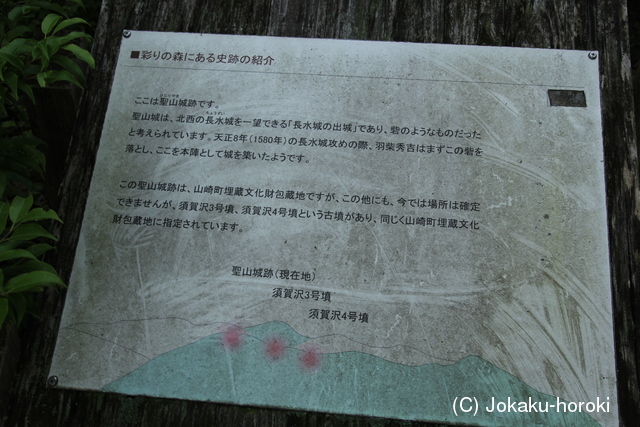 ■彩りの森にある史跡の紹介
ここは聖山城跡です。
聖山城は、北西の長水城を一望できる「長水城の出城」であり、砦のようなものだった
と考えられています。天正8年（1580年）の長水城攻めの際、羽柴秀吉はまずこの砦を
落とし、ここを本陣として城を築いたようです。
この聖山城跡は、山崎町埋蔵文化財包蔵地ですが、この他にも、今では場所は確定
できませんが、須賀沢3号墳、須賀沢4号墳という古墳があり、同じく山崎町埋蔵文化
財包蔵地に指定されています。
聖山城跡（現在地）
須賀沢3号墳
須賀沢4号墳
(C) Jokaku-horoki